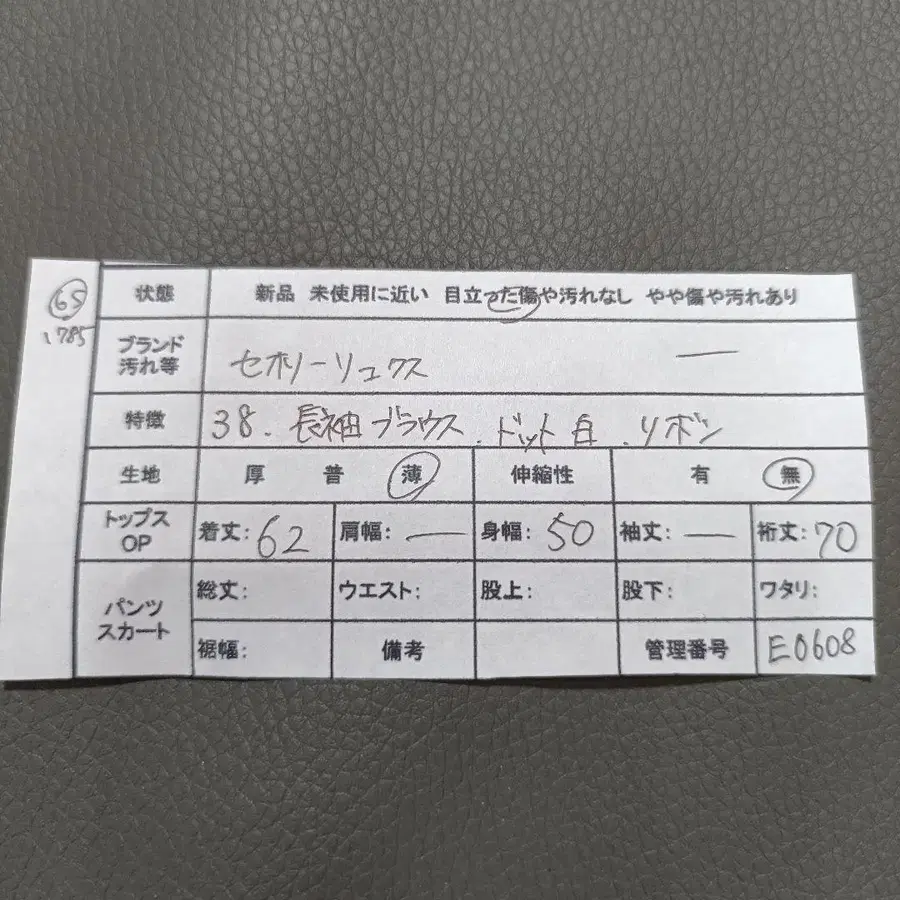 65
1785
状態 新品 未使用に近い 目立った傷や汚れなし やや傷や汚れあり
ブランド
汚れ等
セオリーリュクス ー
特徴 38. 長袖ブラウス. ドット白. リボン
生地 厚 普 薄 伸縮性 有 無
トップス
OP
着丈: 62 肩幅: ー 身幅: 50 袖丈: ー 裄丈: 70
パンツ
スカート
総丈: ウエスト: 股上: 股下: ワタリ:
裾幅: 備考 管理番号 E0608